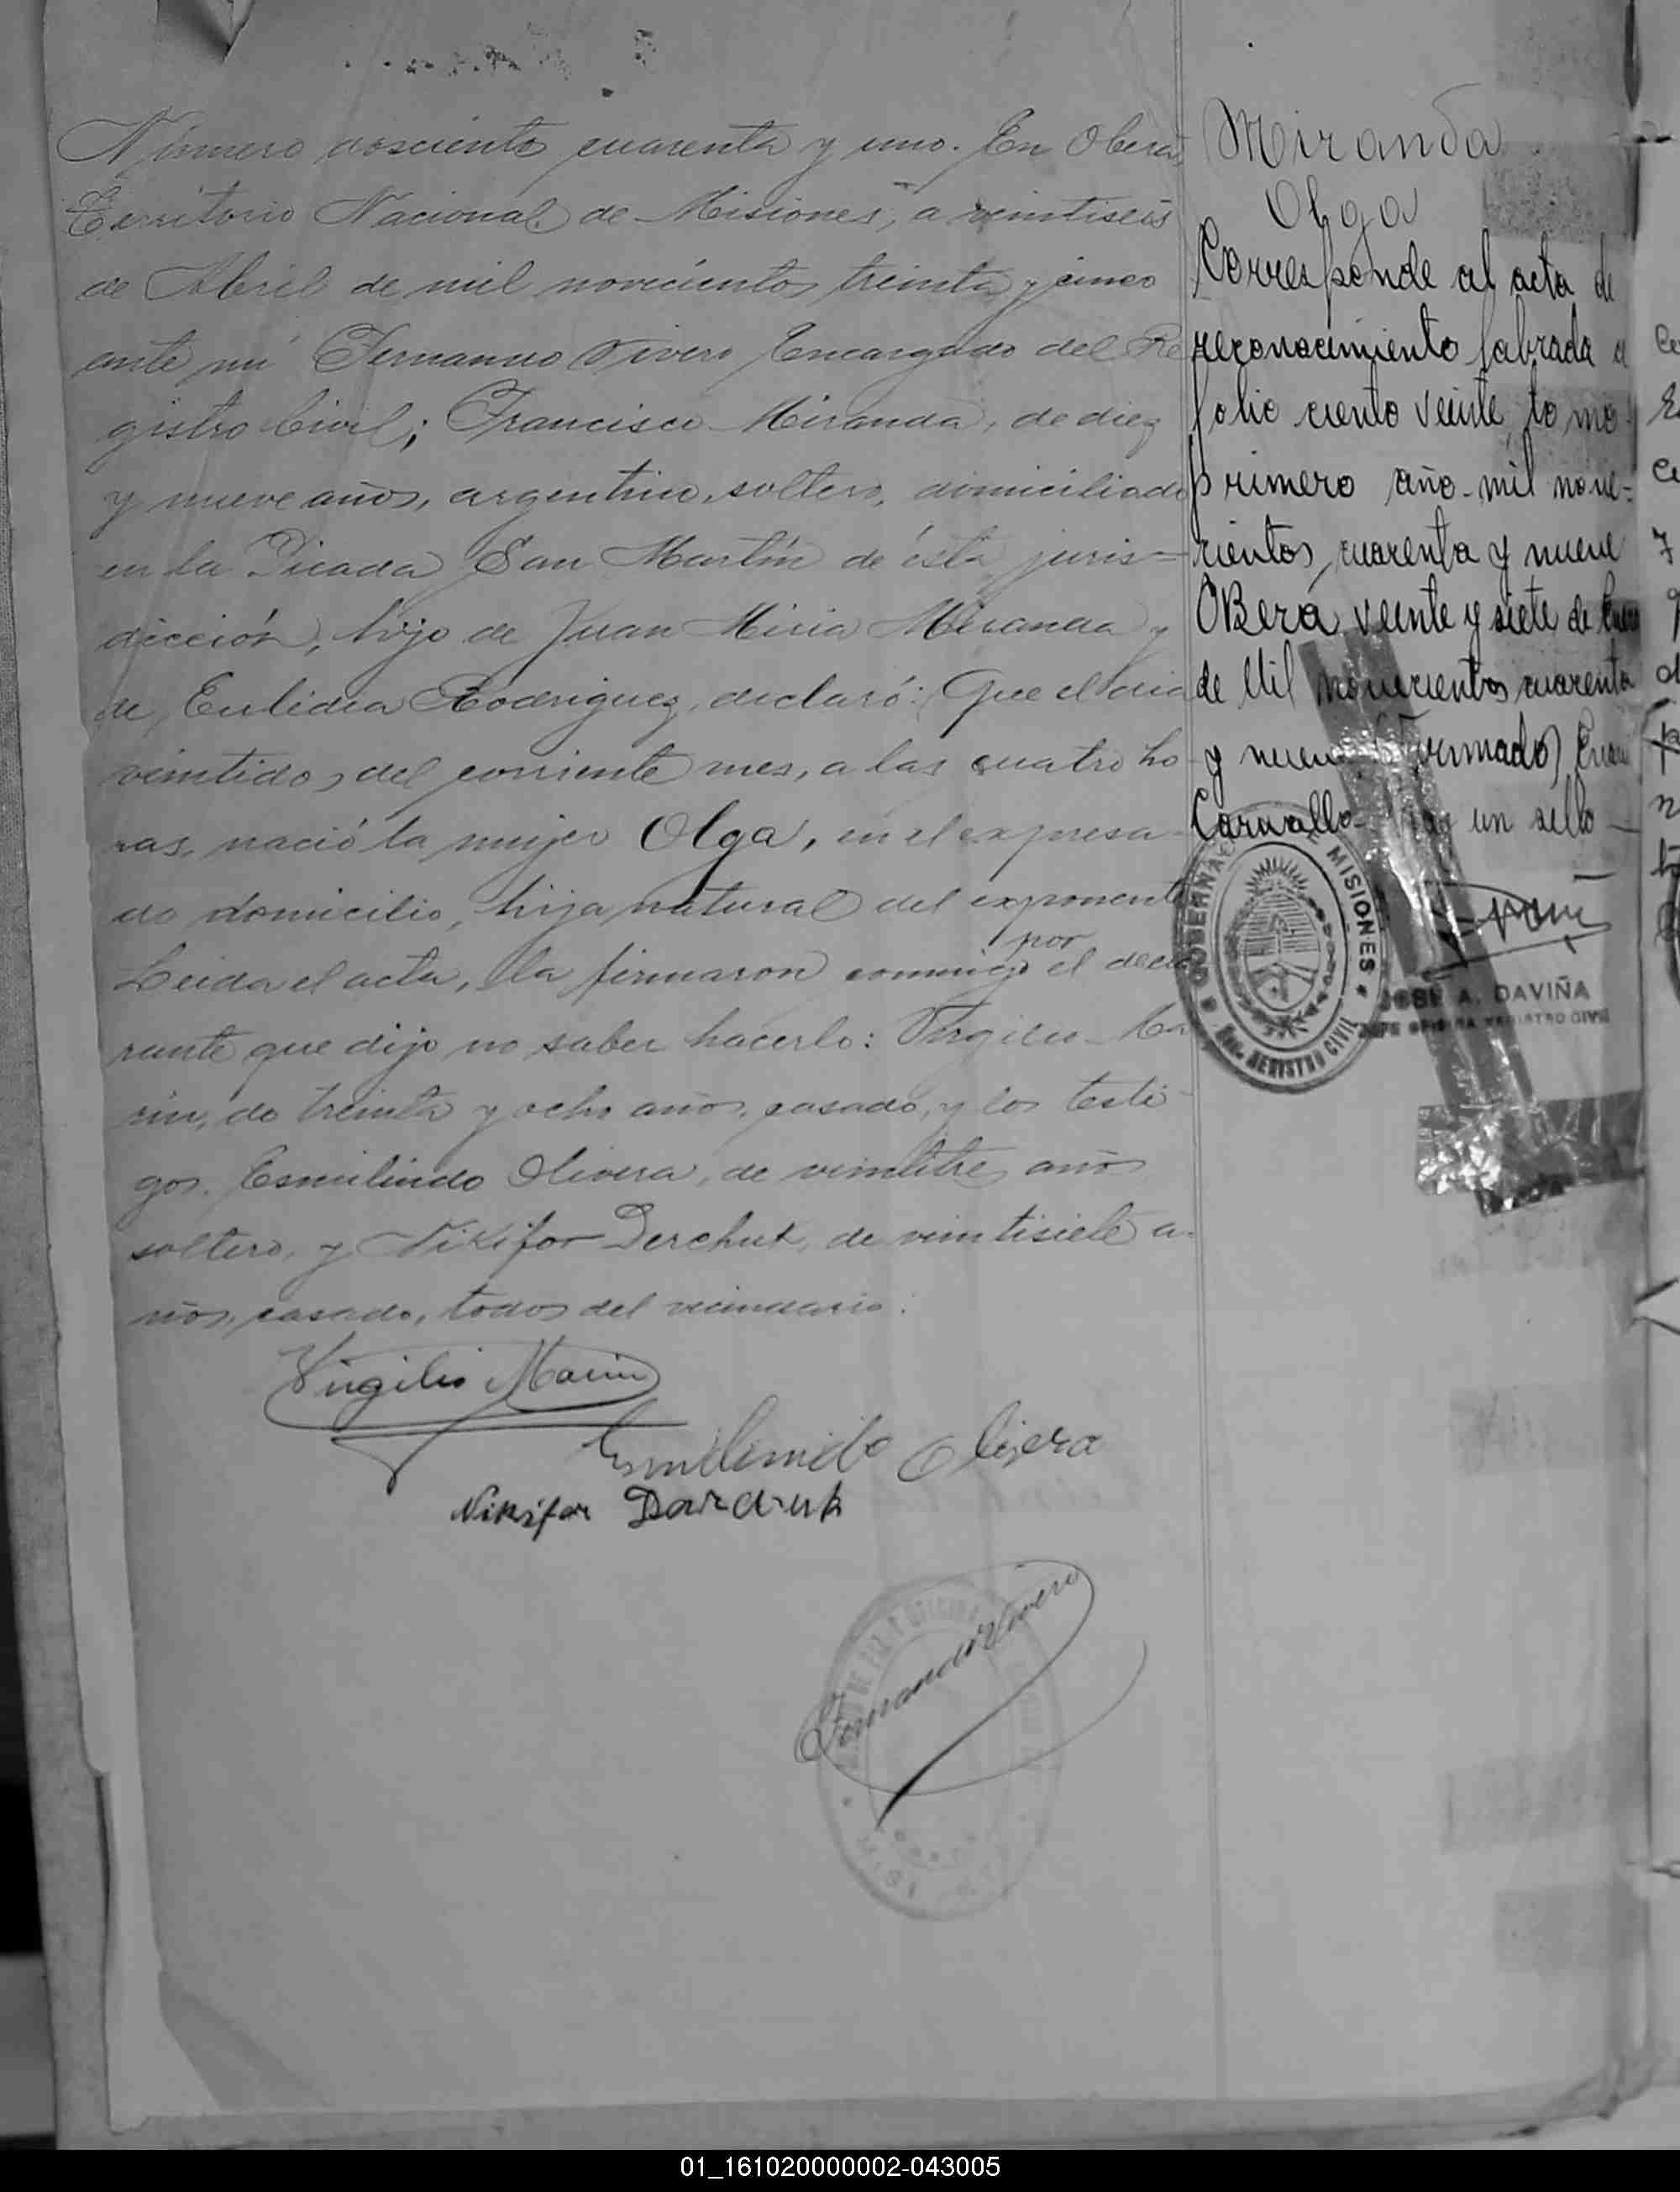 Número doscientos cuarenta y uno. En Oberá,
Territorio Nacional de Misiones, a veintiseis
de Abril de mil novecientos treinta y cinco
ante mí Fernando Vivero Encargado del Re
gistro Civil; Francisco Miranda, de diez
y nueve años, argentino, soltero, domiciliado
en la Picada San Martín de ésta juris=
dicción, hijo de Juan Miranda y
de Eulidia Rodriguez, declaró: Que el dia
veintidos del corriente mes, a las cuatro ho
ras, nació la mujer Olga, en el expresa
do domicilio, hija natural del exponente
por
Leida el acta, la firmaron conmigo el decla
rante que dijo no saber hacerlo: Virgilio Ma
rin, de treinta y ocho años, casado, y los testi-
gos. Esmilindo Olivera, de veintitres años
soltero, y Nikifor Derchuk, de veintisiete a-
ños, casado, todos del vecindario.
Virgilio Marin
Olivera
Nikifor
Fernando Vivero
Miranda
Olga
Corresponde al acta de
reconocimiento labrada a
folio ciento veinte, tomo
primero año mil nove-
cientos, cuarenta y nueve
OBerá, veinte y siete de Enero
de Mil novecientos cuarenta
y nueve Firmado)
Carvallo Hay un sello
GOBERNACION DE MISIONES
REGISTRO CIVIL
JOSE A. DAVIÑA
JEFE OFICINA REGISTRO CIVIL
01_161020000002-043005